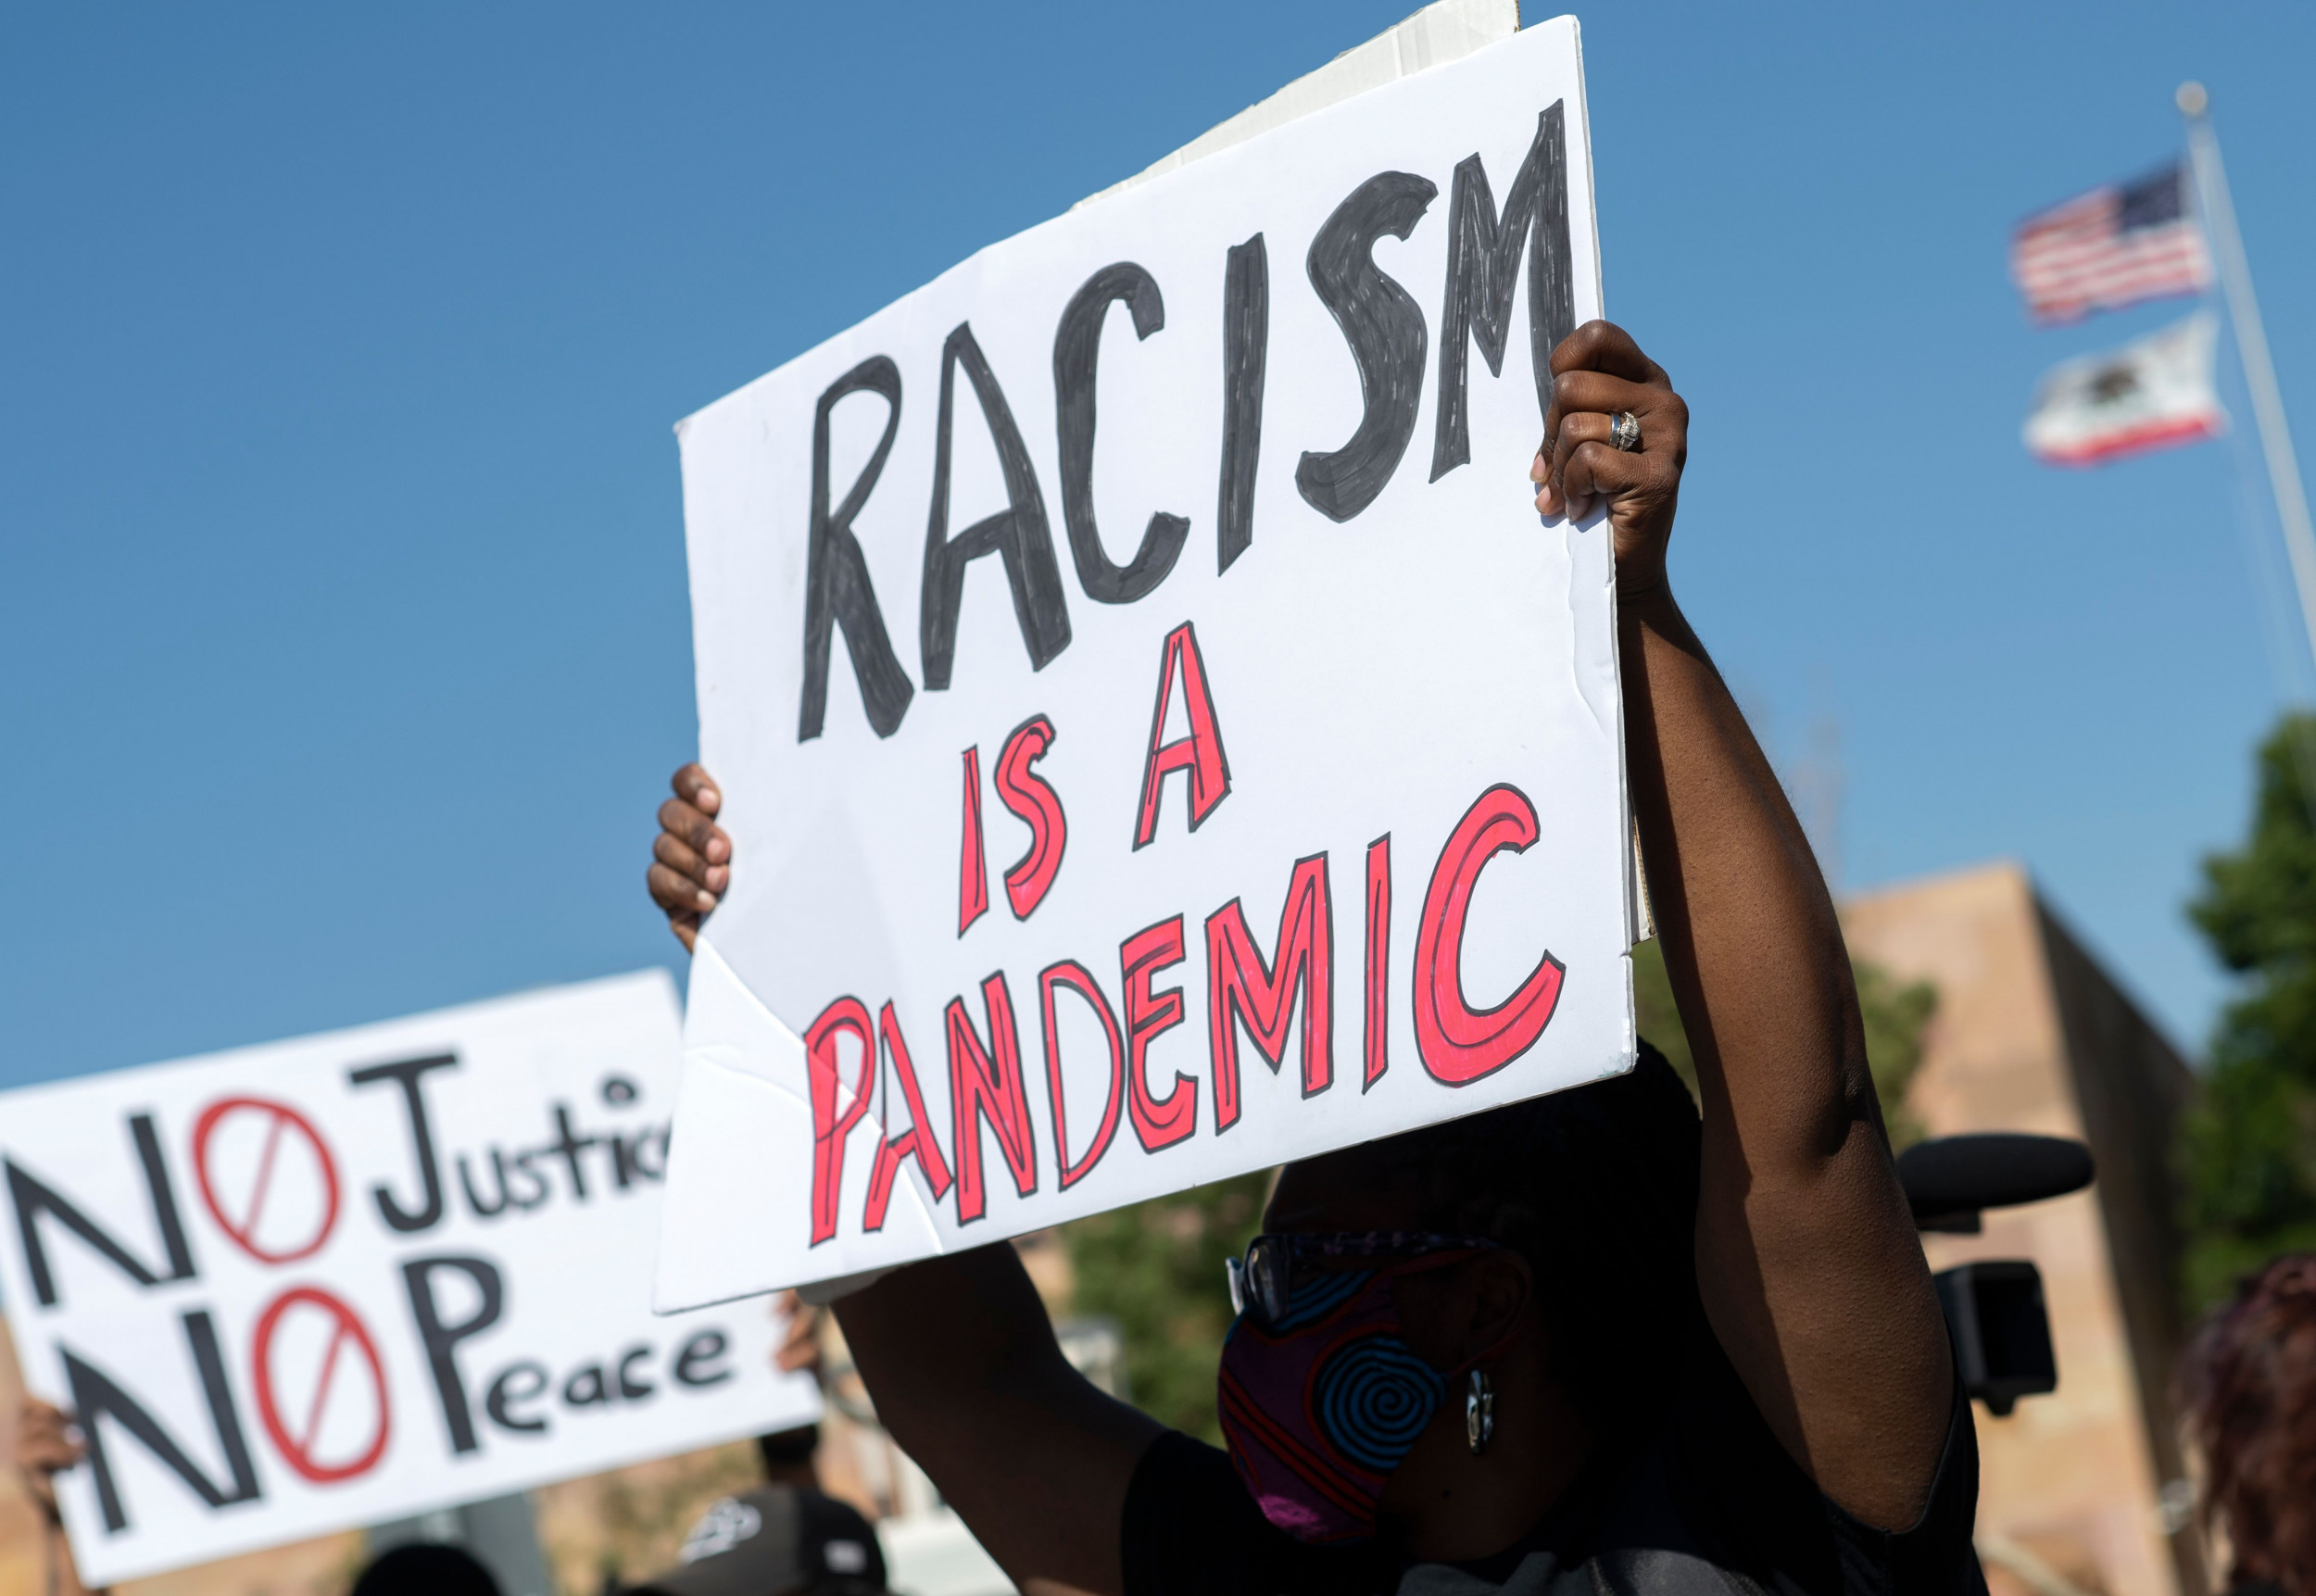 RACISM
IS A
PANDEMIC
NO Justic
NO Peace